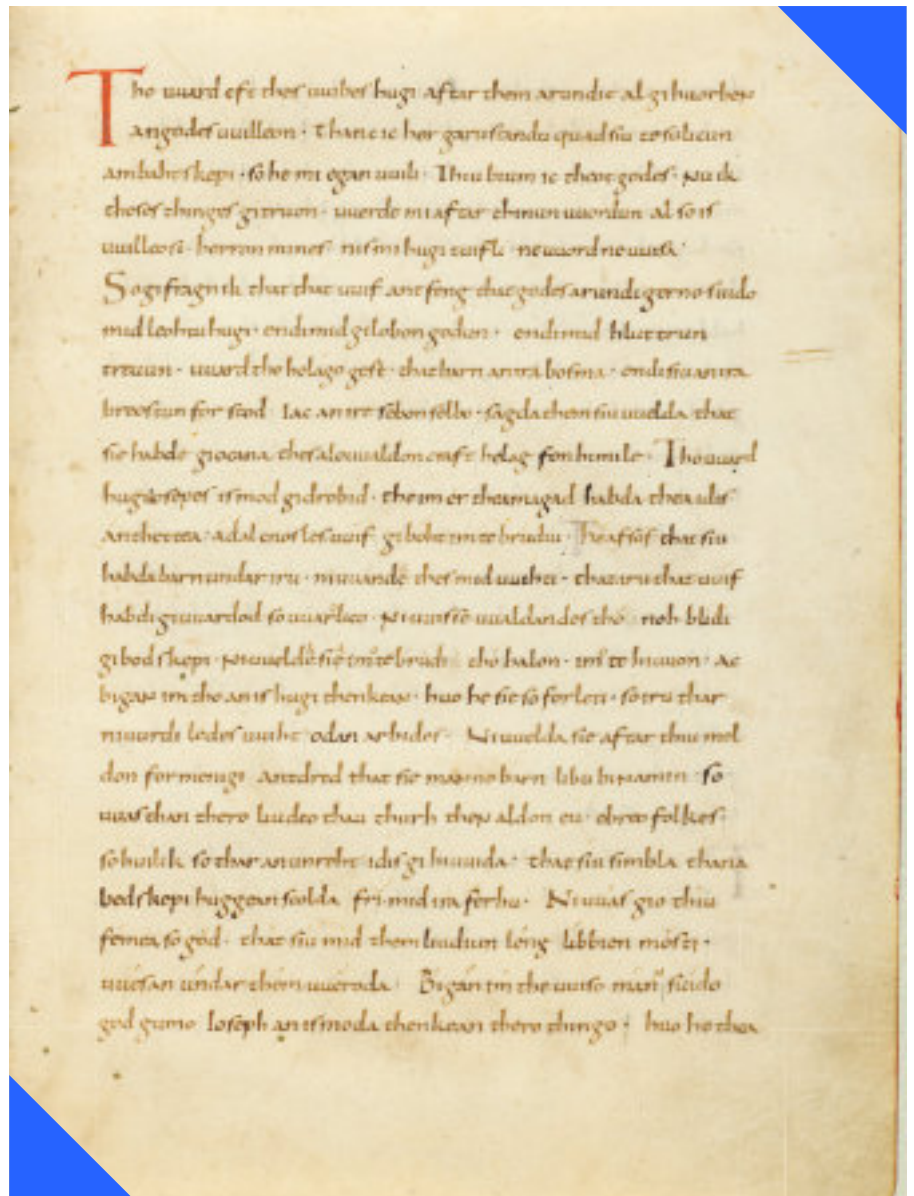 Tho uuard eft thes uuibes hugi aftar them arundie al gihuorben
an godes uuilleon. Than ic her garu standu quad siu te sulicun
ambahtskepi. so he mi egan uuili. Thiu bium ic theotgodes. Nu ik
theses thinges gitruon. uuerde mi aftar thinun uuordun al so is
uuilleo si. herron mines. nis mi hugi tuifli ne uuord ne uuisa.
So gifragn ik that that uuif antfeng that godes arundi gerno suido
mid leohtu hugi. endi mid gilobon godun. endi mid hluttrun
treuun. uuard the helago gest. that barn an ira bosma. endi siu an ira
breostun forstod iac an ire sebon selbo. sagda them siu uuelda that
sie habde giocana thes alouualdon craft helag fon himile. Tho uuard
hugi iosepes is mod gidrobid. the im er thea magad habda thea idis
anthettea. adalcnosles uuif giboht im te brudiu. He afsof that siu
habda barn undar iru. ni uuande thes mid uuihti. that iru that uuif
habdi giuuardod so uuarlico. Ni uuisse uualdandes tho noh blidi
gibodskepi. Ni uuelde sie im te brudi tho halon. im te hiuuon. Ac
bigan im tho an is hugi thenkean. huo he sie so forleti. so iru thar
ni uurdi ledes uuiht odan arbides. Ni uuelda sie aftar thiu mel
don for menigi antdred that sie manno barn libu binamin. so
uuas than thero liudeo thau thurh then aldon eu. ebreo folkes.
so huilik so thar an unreht idis gihiuuida. that siu simbla thana
bedskepi buggean scolda fri mid ira ferhu. Ni uuas gio thiu
femea so god. that siu mid them liudiun leng libbien mosti.
uuesan undar them uueroda. Bigan im the uuiso man suido
god gumo Ioseph an is moda thenkean thero thingo. huo he thea